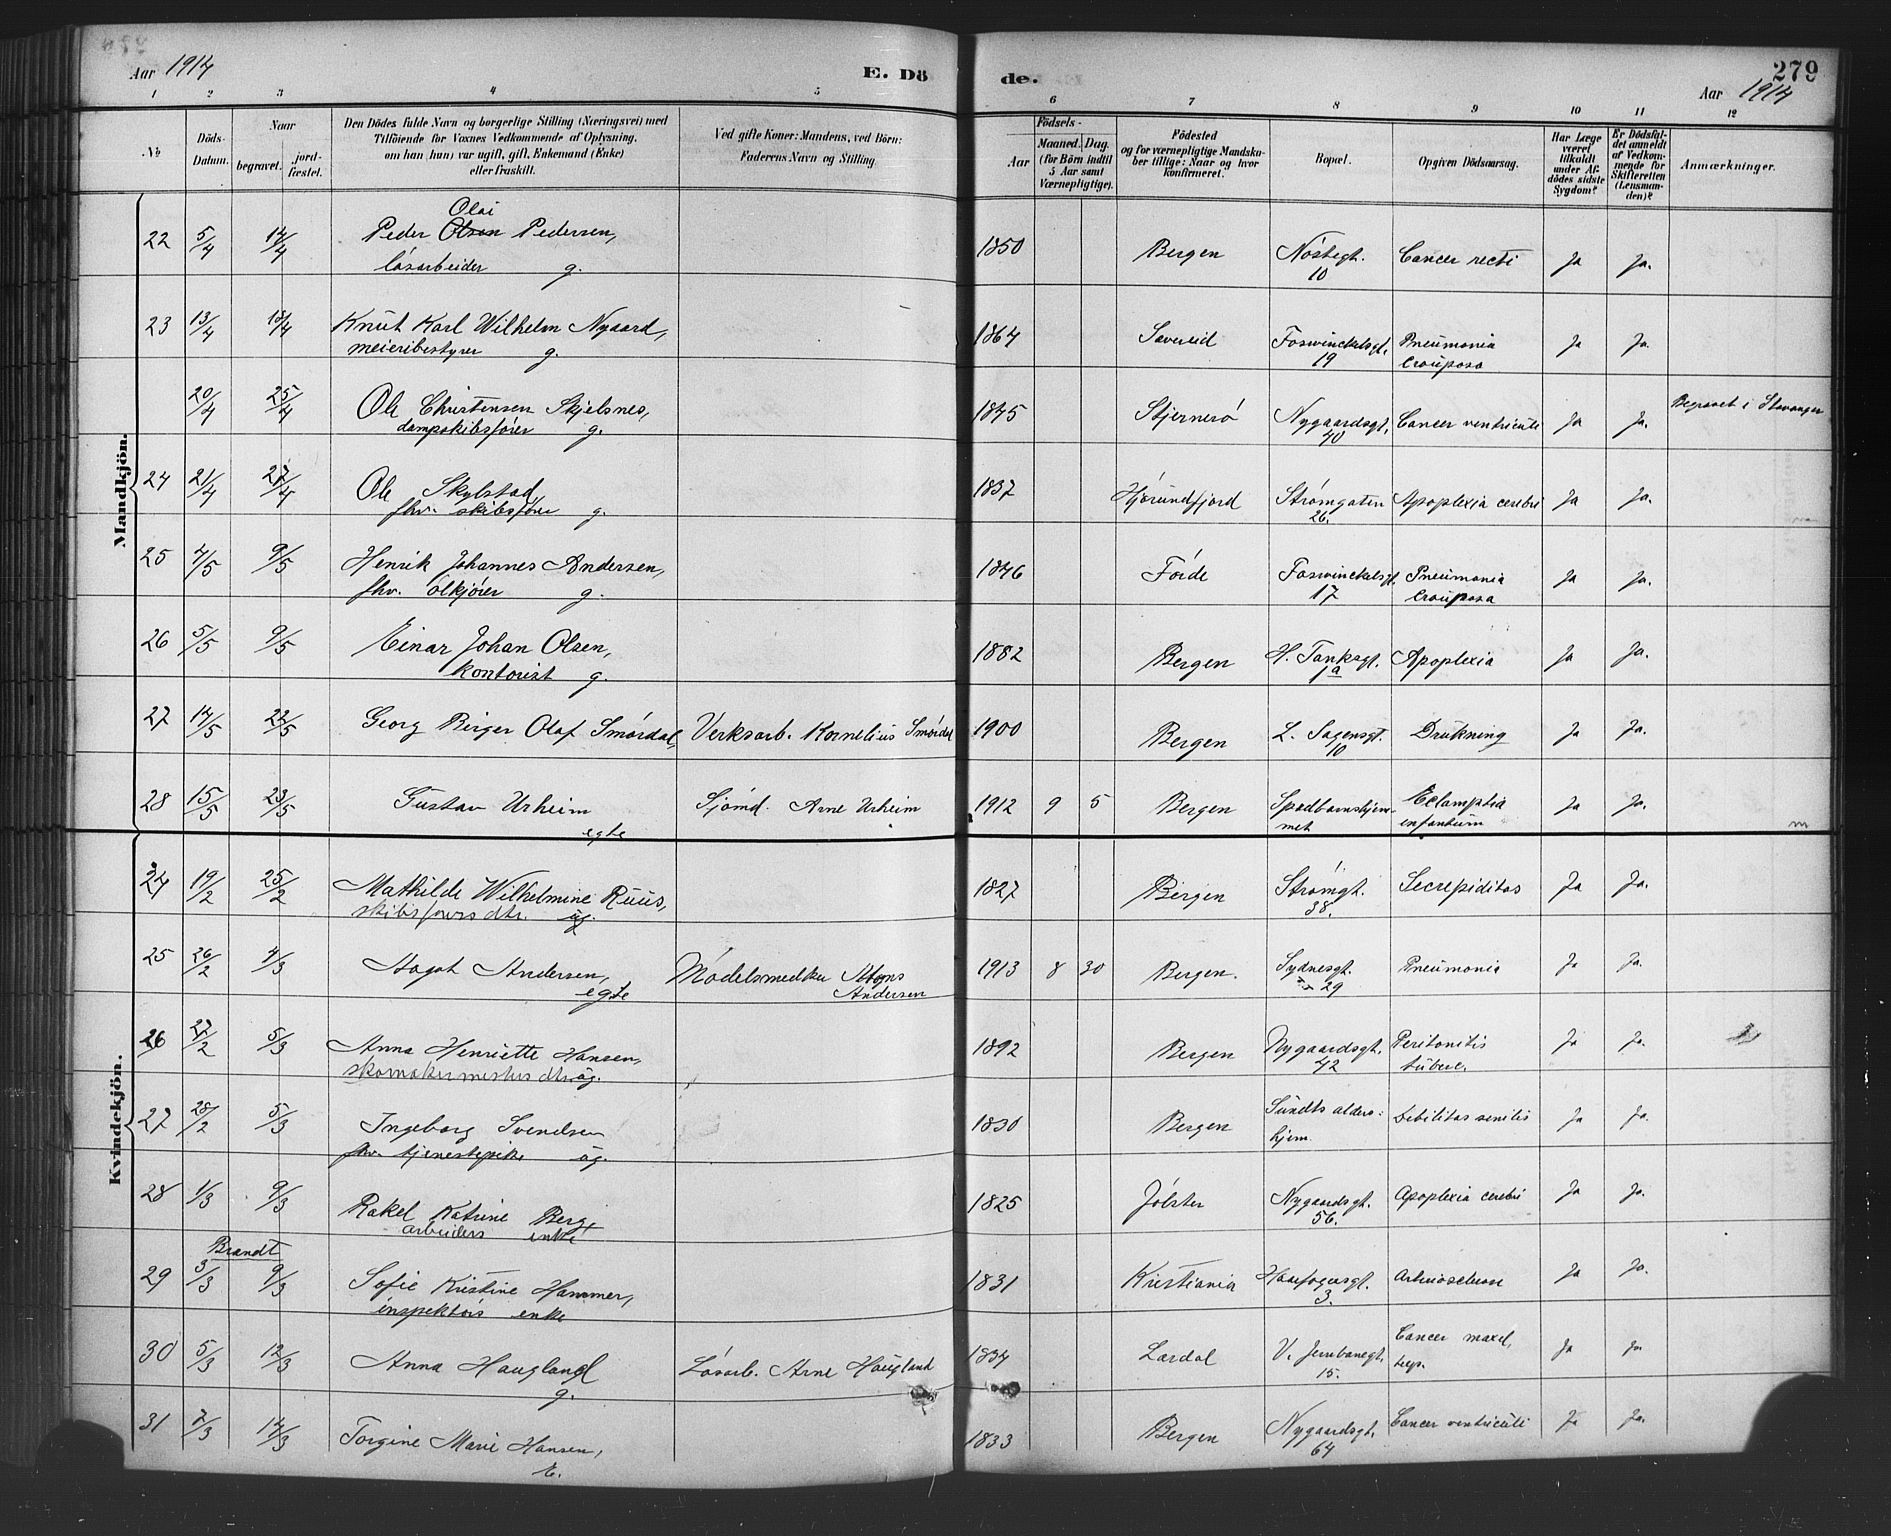 Aar 1914
E. Dö
de.
279
Aar 1914
1 2 3 4 5 6 7 8 9 10 11 12
No
Döds-Datum.
Naar
begravet.
jord-fæstet.
Den Dödes fulde Navn og borgerlige Stilling (Næringsvei) med
Tilföiende for Voxnes Vedkommende af Oplysning,
om han (hun) var ugift, gift, Enkemand (Enke)
eller fraskilt.
Ved gifte Koner: Mandens, ved Börn:
Faderens Navn og Stilling.
Födsels-
Aar
Maaned. Dag.
(for Börn indtil
5 Aar samt
Værnepligtige).
Födested
og for værnepligtige Mandskaber tillige: Naar og hvor konfirmeret.
Bopæl.
Opgiven Dödsaarsag.
Har Læge været tilkaldt under Afdödes sidste Sygdom?
Er Dödsfaldet anmeldt af Vedkommende for Skifteretten (Lensmanden)?
Anmærkninger.
Mandkjön.
22 5/4 14/4 Peder Olai Pedersen, 1850 Bergen Nöstegt. 10 Cancer recti Ja Ja.
lösarbeider g.
23 13/4 18/4 Knut Karl Wilhelm Nygaard, 1864 Fosswinckelsgt. 19 Pneumonia crouposa Ja Ja.
meieribestyrer g.
20/4 25/4 Ole Christensen Skjelsnes, 1845 Stjernerö Nygaardsgt. 40 Cancer ventriculi Ja Ja. Begravet i Stavanger
dampskibsförer g.
24 21/4 27/4 Ole Skylstad 1837 Hjörundfjord Strömgaten 26. Apoplexia cerebri Ja Ja.
fhv. skibsförer g.
25 4/5 9/5 Henrik Johannes Andersen, 1846 Förde Fosswinckelsgt. 17 Pneumonia crouposa Ja Ja.
fhv. ölkjörer g.
26 5/5 9/5 Einar Johan Olsen, 1882 Bergen H. Tanksgt. 1a Apoplexia Ja Ja.
kontorist g.
27 14/5 22/5 Georg Birger Olaf Smördal, Verksarb. Kornelius Smördal 1900 Bergen L. Sagensgt. 10 Drukning Ja Ja.
28 15/5 23/5 Gustav Urheim Sjömd. Arne Urheim 1912 9 5 Bergen Spædbarnshjemmet Eclamptia infantium Ja Ja.
egte
Kvindekjön.
24 19/2 25/2 Mathilde Wilhelmine Ruus, 1827 Bergen Strömgt. 38. Ja Ja.
skibsförers dtr. ug.
25 26/2 4/3 Aagot Andersen, Mödelsnedker Andersen 1913 8 30 Bergen. Sydnesgt. 29 Pneumonia Ja Ja.
egte
26 27/2 5/3 Anna Henriette Hansen, 1892 Bergen Nygaardsgt. 42 Peritonitis tuberc. Ja Ja.
skomakermesters dtr. ug.
27 28/2 5/3 Ingeborg Svendsen 1830 Bergen Sundts aldershjem. Debilitas senilis Ja Ja.
fhv. tjenestepike ug.
28 1/3 9/3 Rakel Katrine Berg 1825 Jölster Nygaardsgt. 56. Apoplexia cerebri Ja Ja.
arbeiders enke
Brandt
29 3/3 9/3 Sofie Kristine Hammer, 1831 Kristiania 3. Ja Ja.
inspektörs enke
30 5/3 12/3 Anna Haugland Lösarb. Arne Haugland 1834 Lærdal V. Jernbanegt. 15. Cancer Ja Ja
g.
31 7/3 14/3 Torgine Marie Hansen, 1833 Bergen Nygaardsgt. 64 Cancer ventriculi Ja Ja.
E.